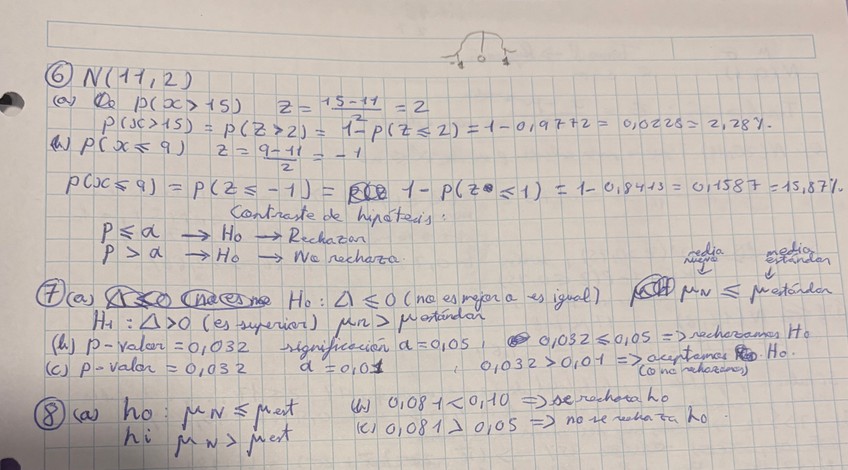 0
⑥ N(11,2)
(a) P(x>15) z = 15-11/2 = 2
P(x>15) = P(Z>2) = 1-P(Z≤2) = 1-0,9772 = 0,0228 = 2,28%.
(b) P(x≤9) z = 9-11/2 = -1
P(x≤9) = P(Z≤-1) = 1-P(Z≤1) = 1-0,8413 = 0,1587 = 15,87%.
Contraste de hipótesis:
P ≤ α → Ho → Rechazar
P > α → Ho → No rechaza.
media nueva ↓ media estándar ↓
⑦ (a) Ho: Δ ≤ 0 (no es mejor a es igual) μN ≤ μestándar
H1: Δ>0 (es superior) μn > μestándar
(b) p-valor = 0,032 significación α = 0,05, 0,032 ≤ 0,05 => rechazamos Ho
(c) p-valor = 0,032 α = 0,01, 0,032 > 0,01 => aceptamos Ho.
(o no rechazamos)
⑧ (a) ho: μN ≤ μest (b) 0,081 < 0,10 => se rechaza ho
hi μN > μest (c) 0,081 > 0,05 => no se rechaza ho.